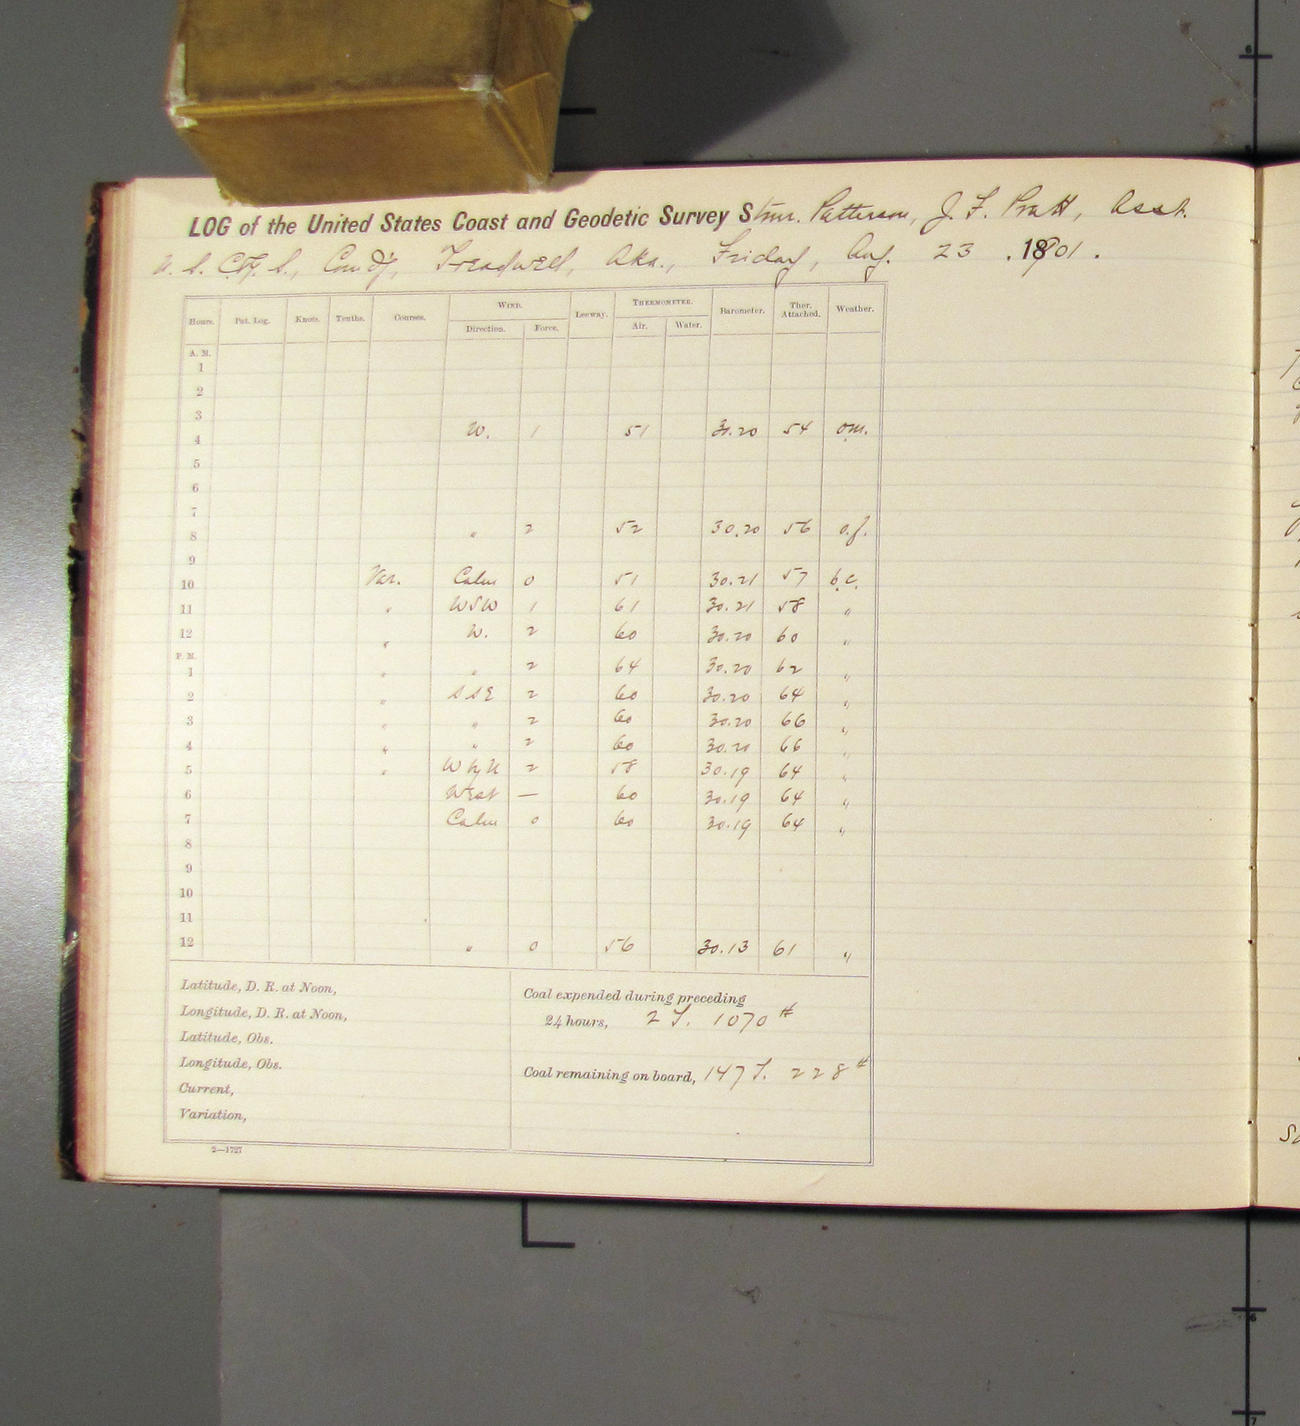 LOG of the United States Coast and Geodetic Survey Stmr. Patterson, J. F. Pratt, Asst.
U. S. C. & G. S., Comdg, Treadwell, Aka., Friday, Aug. 23 . 1901 .
Hours. Pat. Log. Knots. Tenths. Courses. WIND. Leeway. THERMOMETER. Barometer. Ther. Attached. Weather.
Direction. Force. Air. Water.
A. M.
1
2
3
4 W. 1 51 30.20 54 o.m.
5
6
7
8 " 2 52 30.20 56 o.f.
9
10 Var. Calm 0 51 30.21 57 b.c.
11 " WSW 1 61 30.21 58 "
12 " W. 2 60 30.20 60 "
P. M.
1 " " 2 64 30.20 62 "
2 " SSE 2 60 30.20 64 "
3 " " 2 60 30.20 66 "
4 " " 2 60 30.20 66 "
5 " W by N 2 58 30.19 64 "
6 West — 60 30.19 64 "
7 Calm 0 60 30.19 64 "
8
9
10
11
12 " 0 56 30.13 61 "
Latitude, D. R. at Noon,
Longitude, D. R. at Noon,
Latitude, Obs.
Longitude, Obs.
Current,
Variation,
Coal expended during preceding
24 hours, 2 T. 1070 #
Coal remaining on board, 147 T. 228 #
2—1727
6
6
7